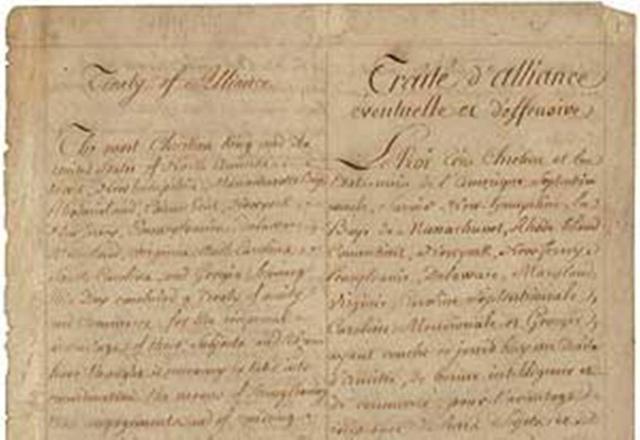 Treaty of Alliance.
The most Christian King and the
United States of North America
New hampshire, Massachusetts Bay
Rhodeisland, Connecticut, Newyork
New Jersey, Pennsylvania, Delaware
Maryland, Virginia, North Carolina
South Carolina, and Georgia, having
this Day concluded a Treaty of amity
and Commerce, for the reciprocal
advantage of their Subjects and
have thought it necessary to take into
consideration the means of strengthening
those engagements and of
Traité d'alliance
eventuelle et deffensive
Le Roi très Chretien et les
Etats unis de l'Amerique septentrio
New-hampshire, la
Baye de Massachuset, Rhode Island
Connecticut, Newyork, New Jersey
Pensylvanie, Delaware, Maryland
Virginie Caroline septentrionale,
Caroline Meridionale et Georgie,
ayant conclu ce jourd'huy un Traité
d'amitié, de bonne intelligence et
de commerce, pour l'avantage
de leurs Sujets et